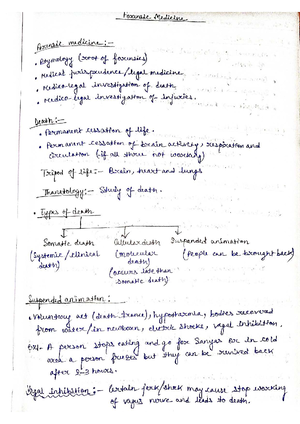 Forensic Medicine
Forensic medicine:-
• Etymology (root of forensics)
• Medical jurisprudence / legal medicine
• Medico-legal investigation of death
• Medico-legal investigation of injuries.
Death:-
• Permanent cessation of life.
• Permanent cessation of brain activity, respiration and
circulation (if all three not working)
Tripod of life:- Brain, heart and lungs
Thanatology:- Study of death.
• Types of death
Somatic death Cellular death Suspended animation
(Systemic / clinical (molecular (People can be brought back)
death) death)
(occurs late than
somatic death)
Suspended animation:
• Voluntary act (death trance), hypothermia, bodies recovered
from water / in newborn, electric shocks, vagal inhibition.
A person stops eating and go for or in cold
area a person freezes but they can be revived back
after 2-3 hours.
Vagal inhibition:- Certain may cause stop working
of vagus nerve and leads to death.